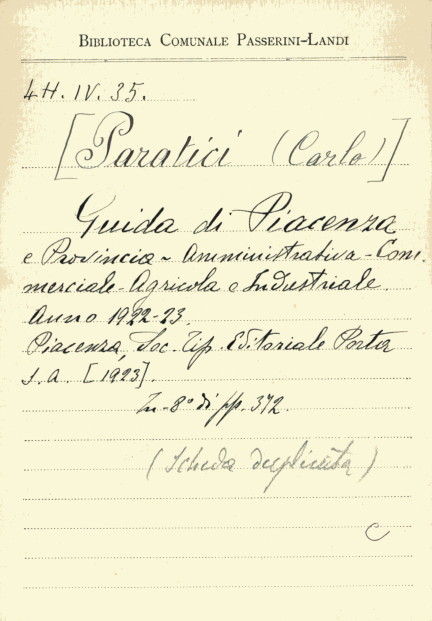 BIBLIOTECA COMUNALE PASSERINI-LANDI
4H. IV. 35.
[Paratici (Carlo)]
Guida di Piacenza
e Provincia - Amministrativa - Com.
merciale - Agricola e Industriale.
Anno 1922-23.
Piacenza, Soc. Tip. Editoriale Porta
s. a. [1923].
In-8° di pp. 372.
(Scheda duplicata)
C